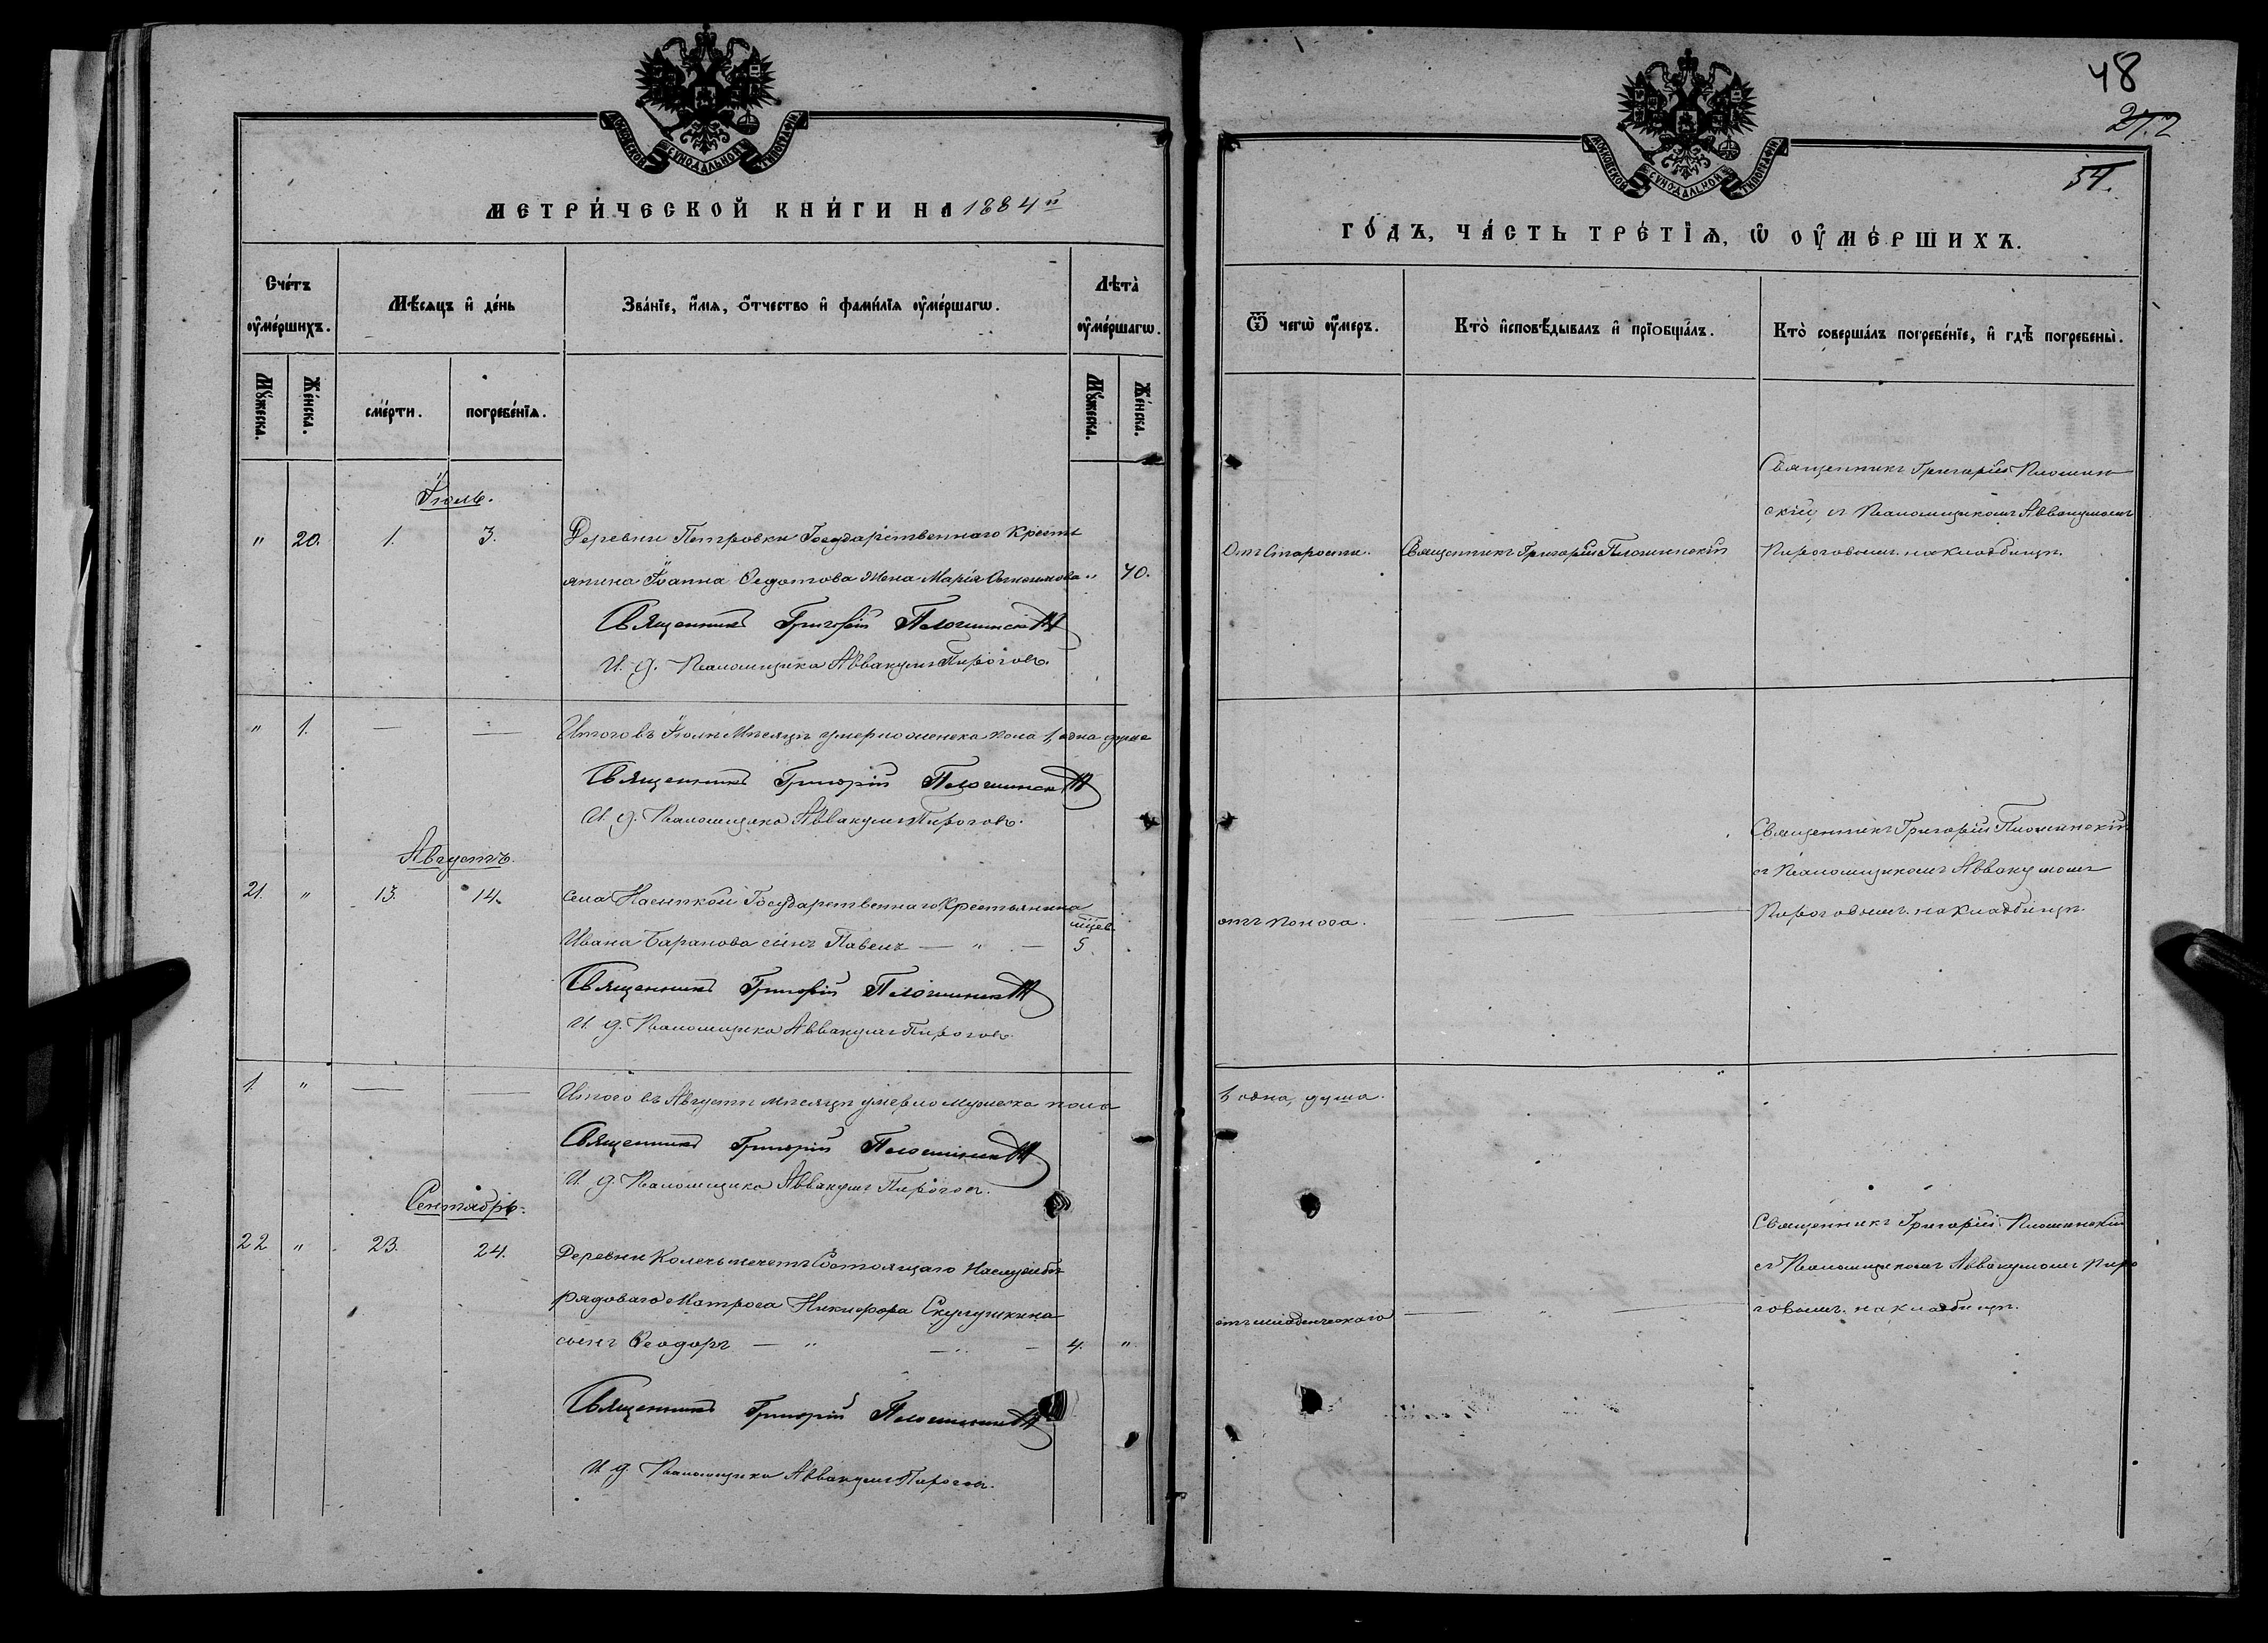 МОСКОВСКОЙ СУНОДАЛЬНОЙ ТИПОГРАФІИ
МЕТРИ́ЧЕСКОЙ КНИ́ГИ НА 1884 й
Сче́тъ ᲂу҆ме́ршихъ.
Мѣ́сяцъ и҆ де́нь
Зва́нїе, и҆́мя, ѻ҆́тчество и҆ фами́лїя ᲂу҆ме́ршагѡ.
Лѣта̀ ᲂу҆ме́ршагѡ.
Мꙋ́жеска.
Же́нска.
сме́рти.
погребе́нїя.
Мꙋ́жеска.
Же́нска.
Іюль.
" 20. 1. 3. Деревни Петровки Государственнаго Кресть
янина Іоанна Федотова Жена Марія " 70.
Священникъ Григорій Плошинскій
И. д. Псаломщика Аввакумъ Пироговъ.
" 1. — — Итого въ Іюлѣ Мѣсяцѣ умерло женска пола 1, одна душа
Священникъ Григорій Плошинскій
И. д. Псаломщика Аввакумъ Пироговъ.
Августъ.
21. " 13. 14. села Насыпкой Государственнаго Крестьянина
Ивана Баранова сынъ Павелъ — " — мѣсев. 5.
Священникъ Григорій Плошинскій
И. д. Псаломщика Аввакумъ Пироговъ.
1. " — — Итого въ Августѣ мѣсяцѣ умерло мужеска пола
Священникъ Григорій Плошинскій
И. д. Псаломщика Аввакумъ Пироговъ.
Сентябрь.
22 " 23. 24. Деревни Колечь мечеть Состоящаго на службѣ
рядоваго Матроса Никифора
сынъ Ѳеодоръ — " — 4. "
Священникъ Григорій Плошинскій
И. д. Псаломщика Аввакумъ Пироговъ.
48
54.
МОСКОВСКОЙ СУНОДАЛЬНОЙ ТИПОГРАФІИ
ГО́ДЪ, ЧА́СТЬ ТРЕ́ТЇѦ, Ѡ҆ ОУ҆МЕ́РШИХЪ.
Ѿ чегѡ̀ ᲂу҆́меръ.
Кто̀ и҆сповѣ́дывалъ и҆ прїѻбща́лъ.
Кто̀ соверша́лъ погребе́нїе, и҆ гдѣ̀ погребены̀.
Священникъ Григорій Плошин
скій, съ Псаломщикомъ Аввакумомъ
Отъ старости. Священникъ Григорій Плошинскій Пироговымъ. на кладбищѣ.
Священникъ Григорій Плошинскій
съ Псаломщикомъ Аввакумомъ
отъ поноса. — Пироговымъ. на кладбищѣ.
1, одна, душа.
Священникъ Григорій Плошинскій
съ Псаломщикомъ Аввакумомъ Пиро
отъ младенческаго — " — говымъ. на кладбищѣ.